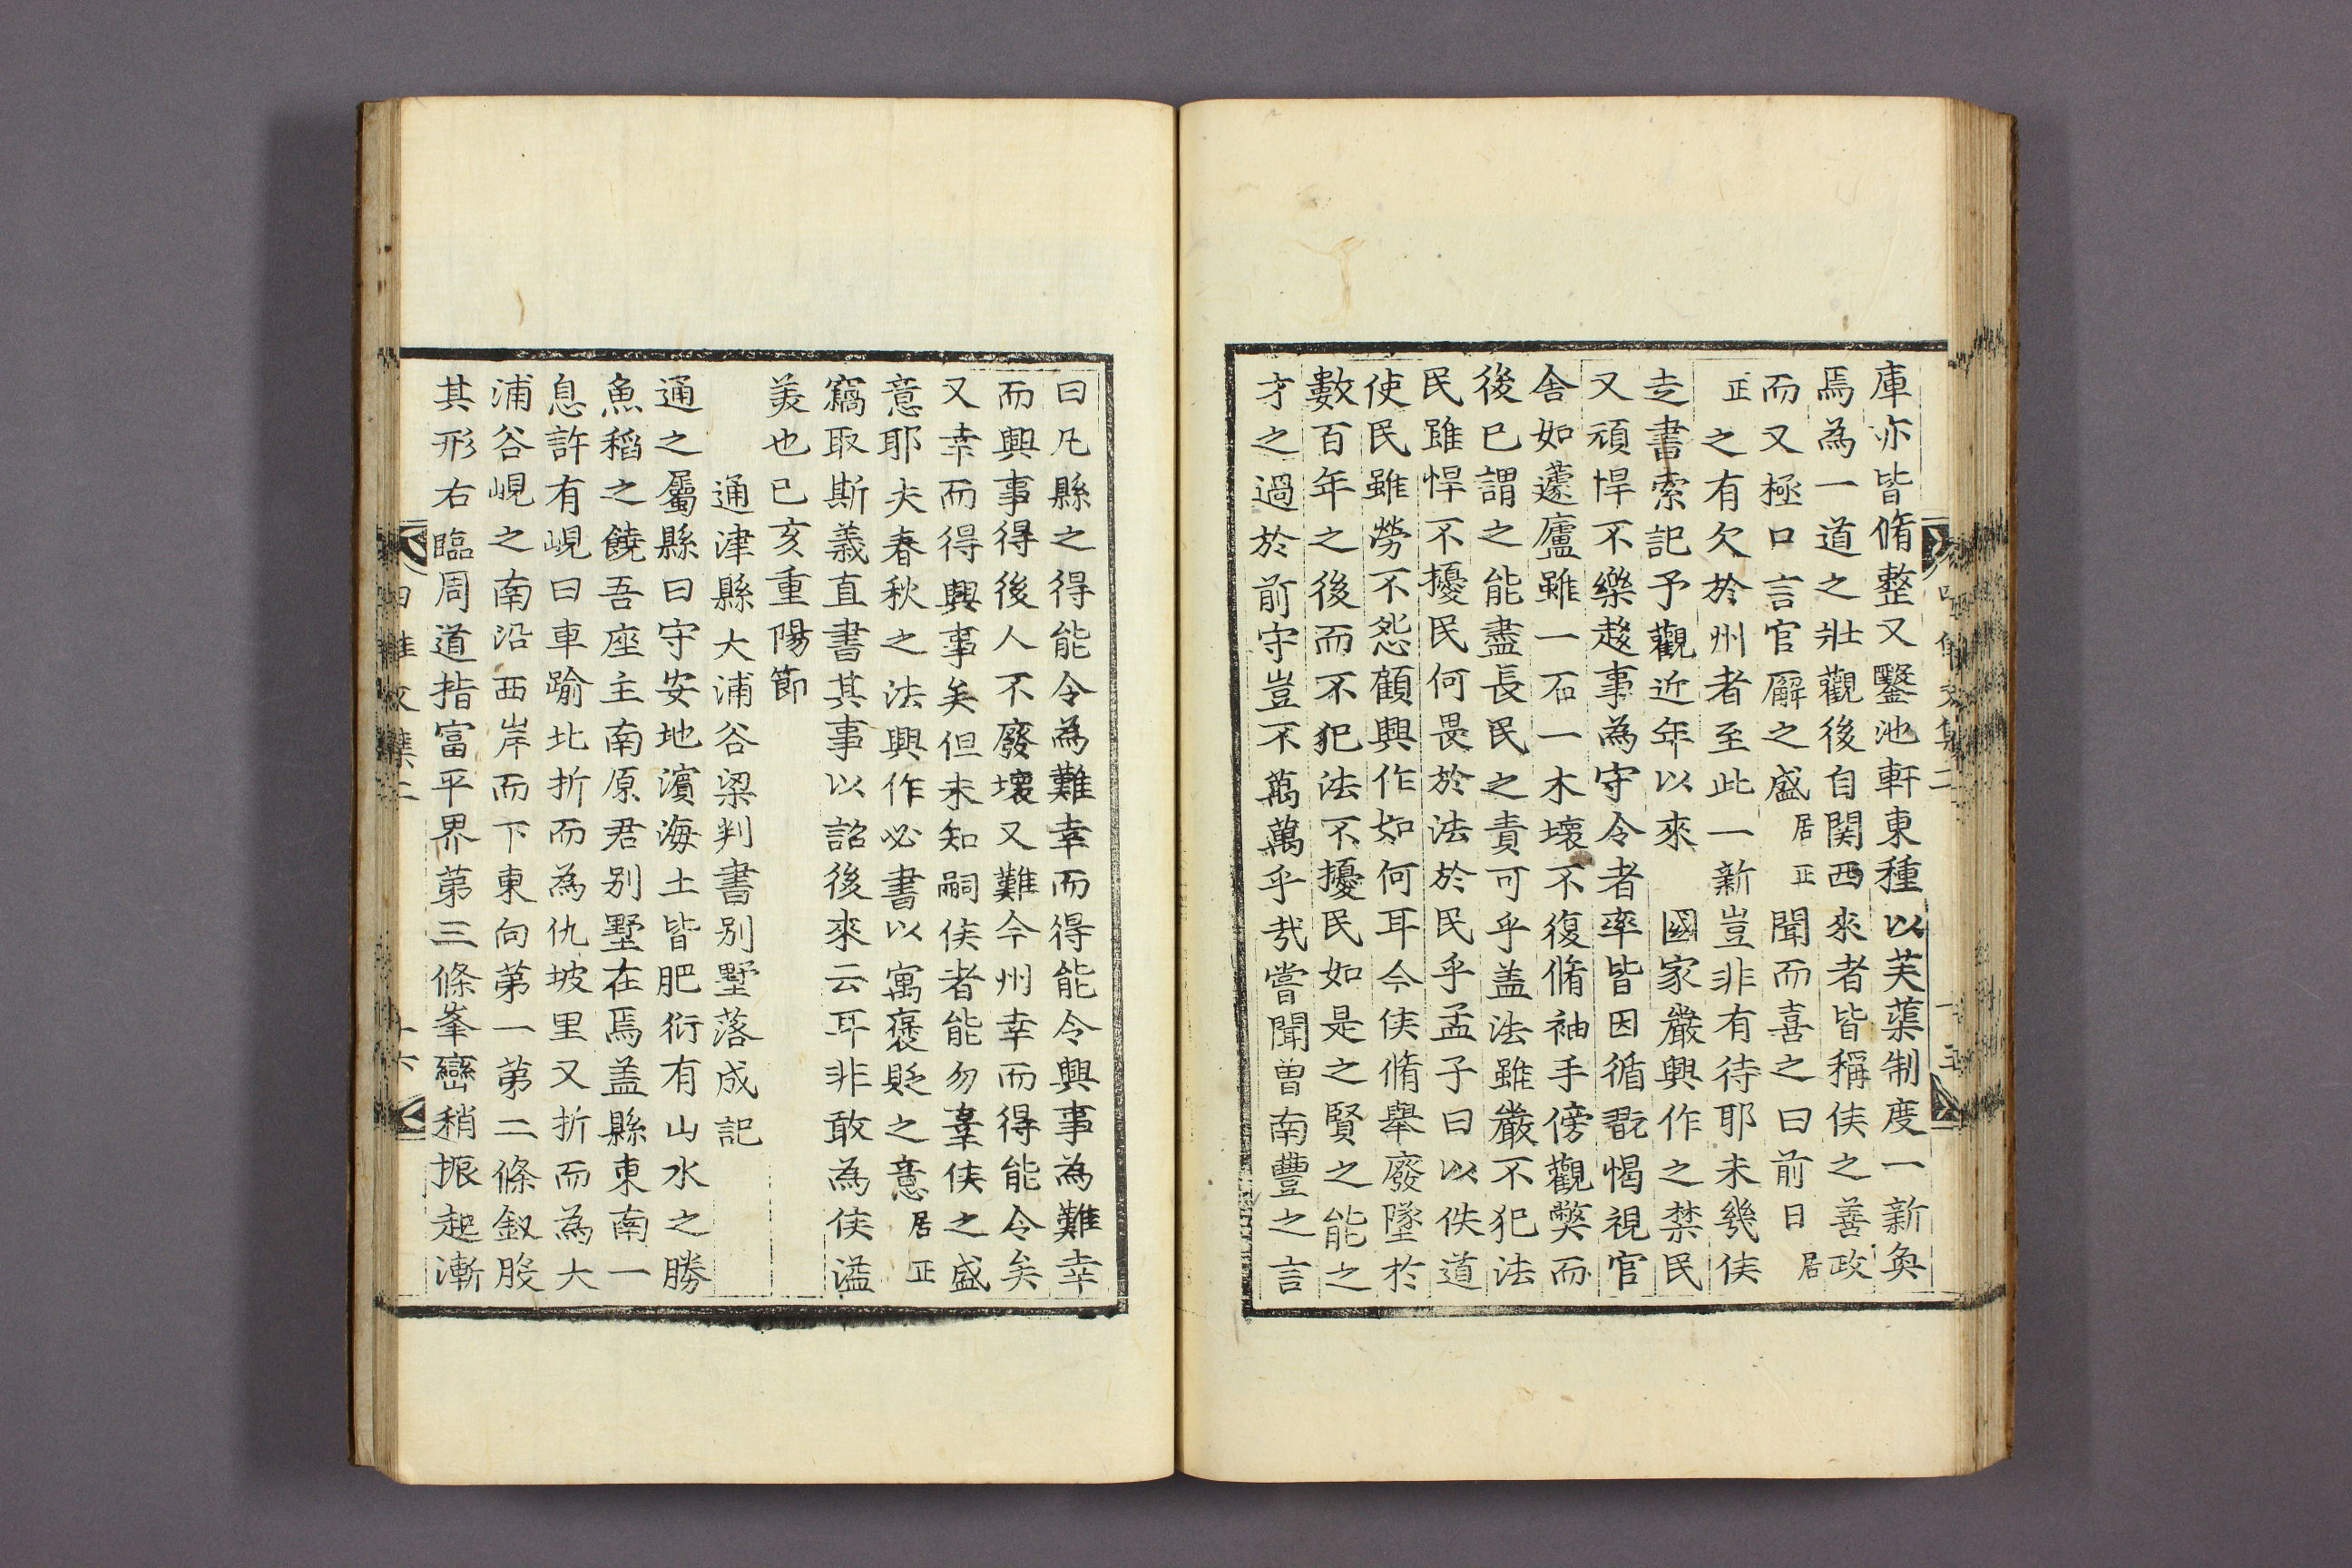 庫亦皆脩整又鑿池軒東種以芙蕖制度一新奐
焉為一道之壯觀後自関西來者皆稱侯之善政
而又極口言官廨之盛居正聞而喜之曰前日居
正之有欠於州者至此一新豈非有待耶未幾侯
走書索記予觀近年以來國家嚴興作之禁民
又頑悍不樂趍事為守令者率皆因循翫愒視官
舍如蘧廬雖一石一木壞不復脩袖手傍觀獘而
後已謂之能盡長民之責可乎盖法雖嚴不犯法
民雖悍不擾民何畏於法於民乎孟子曰以佚道
使民雖勞不怨顧興作如何耳今侯脩舉廢墜於
數百年之後而不犯法不擾民如是之賢之能之
才之過於前守豈不萬萬乎哉嘗聞曽南豊之言
曰凡縣之得能令為難幸而得能令興事為難幸
而興事得後人不廢壞又難今州幸而得能令矣
又幸而得興事矣但未知嗣侯者能勿辜侯之盛
意耶夫春秋之法興作必書以寓褒貶之意居正
竊取斯義直書其事以詔後來云耳非敢為侯溢
美也已亥重陽節
通津縣大浦谷梁判書别墅落成記
通之屬縣曰守安地濵海土皆肥衍有山水之勝
魚稻之饒吾座主南原君别墅在焉盖縣東南一
息許有峴曰車踰北折而為仇坡里又折而為大
浦谷峴之南沿西岸而下東向第一第二條釵股
其形右臨周道指富平界第三條峯巒稍振起漸
四佳文集二
十六